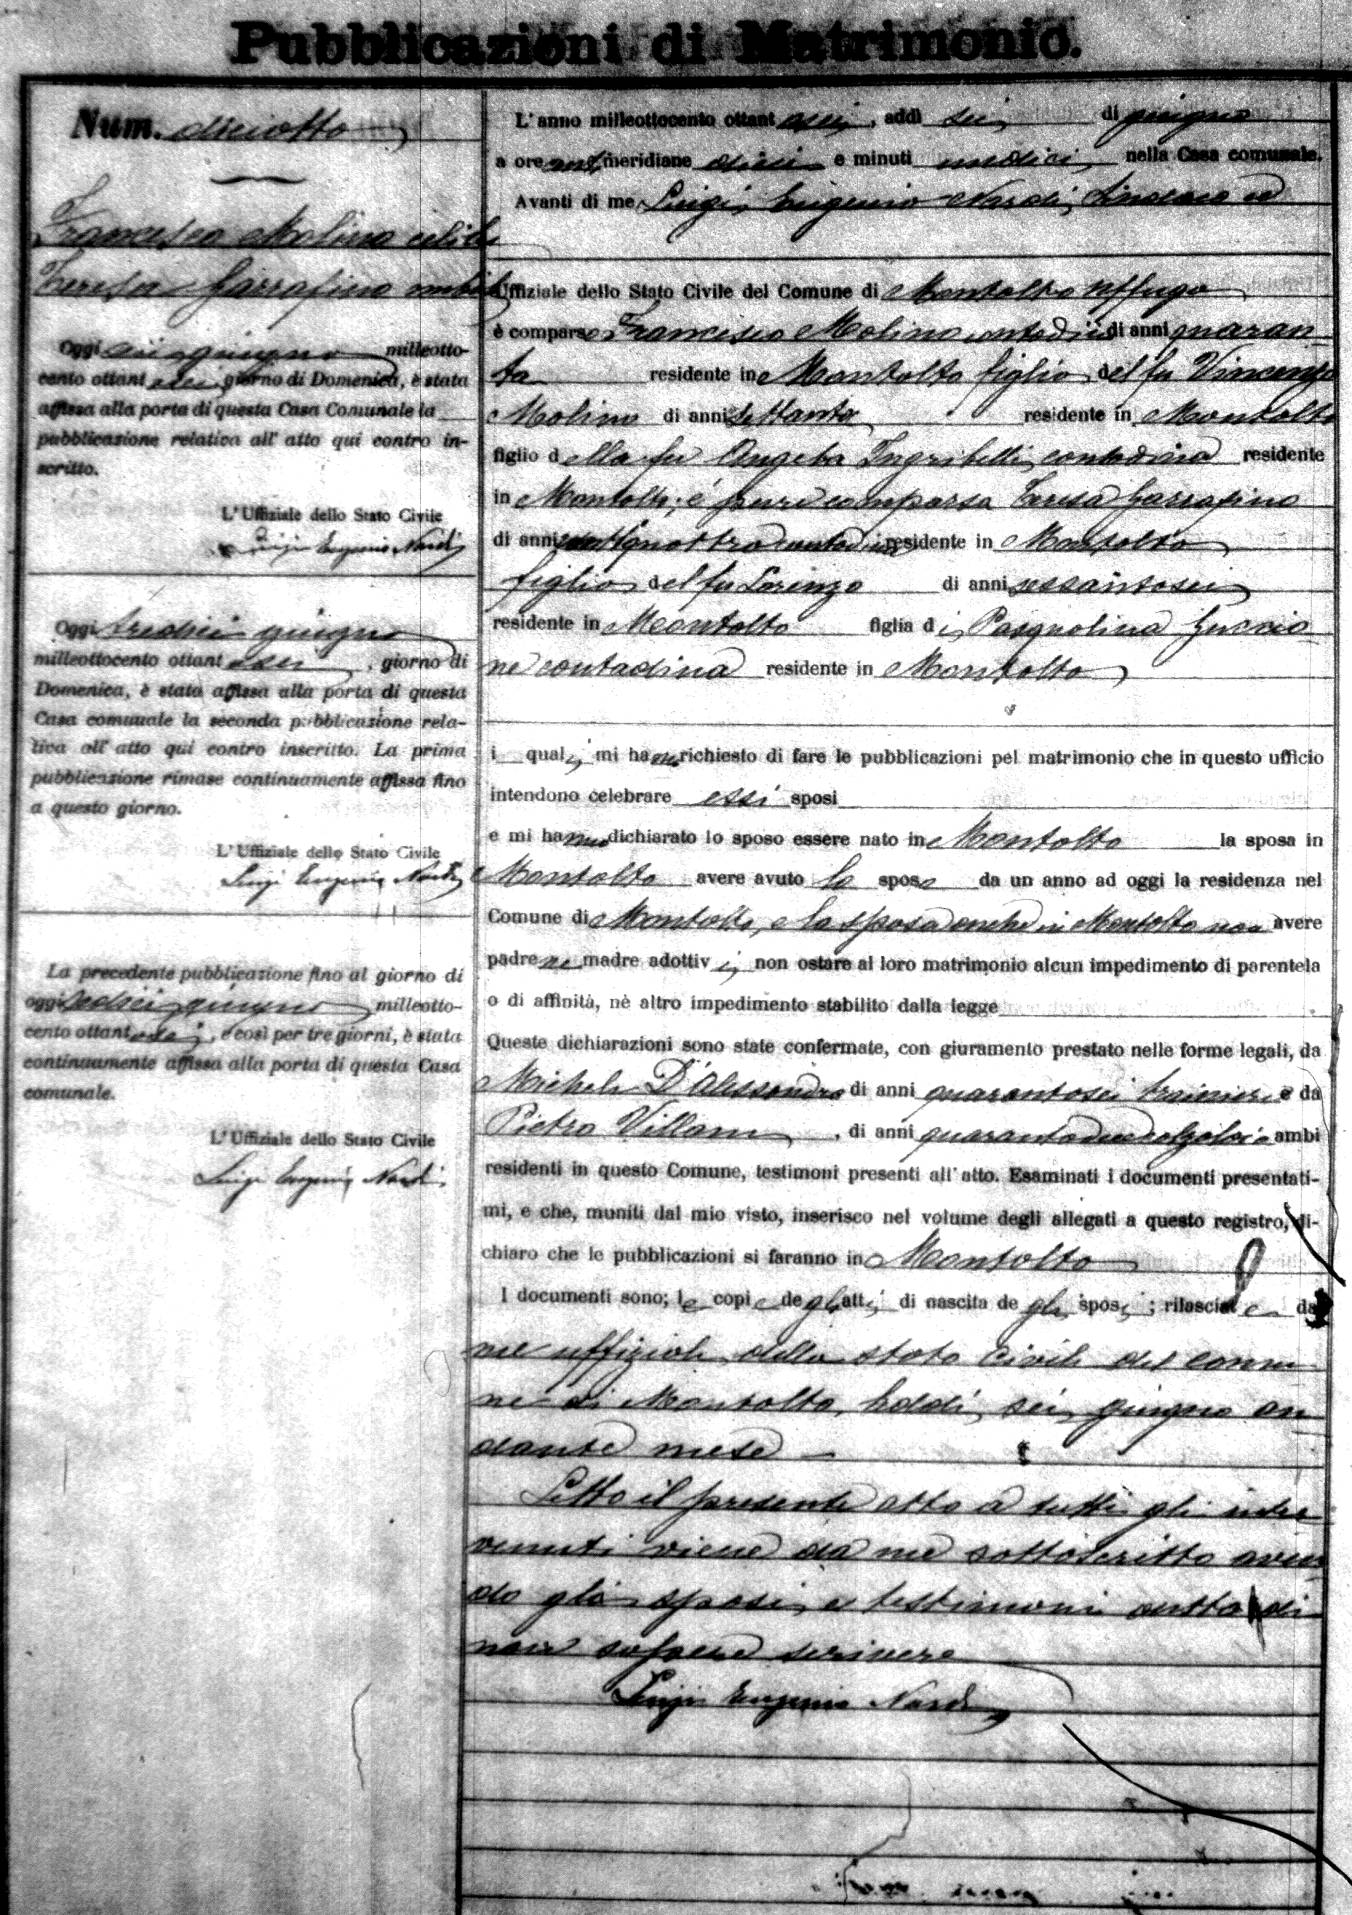 Pubblicazioni di Matrimonio.
Num. diciotto
Francesco Molino celibe
Teresa Garrafino nubile
Oggi sei giugno milleotto-
cento ottantasei giorno di Domenica, è stata
affissa alla porta di questa Casa Comunale la
pubblicazione relativa all' atto qui contro in-
scritto.
L' Uffiziale dello Stato Civile
Luigi Eugenio Nardi
Oggi tredici giugno
milleottocento ottantasei, giorno di
Domenica, è stata affissa alla porta di questa
Casa comunale la seconda pubblicazione rela-
tiva all' atto qui contro inscritto. La prima
pubblicazione rimase continuamente affissa fino
a questo giorno.
L' Uffiziale dello Stato Civile
Luigi Eugenio Nardi
La precedente pubblicazione fino al giorno di
oggi sedici giugno milleotto-
cento ottantasei, e così per tre giorni, è stata
continuamente affissa alla porta di questa Casa
comunale.
L' Uffiziale dello Stato Civile
Luigi Eugenio Nardi
L' anno milleottocento ottantasei, addì sei di giugno
a ore antimeridiane dieci e minuti undici, nella Casa comunale.
Avanti di me Luigi Eugenio Nardi, Sindaco ed
Uffiziale dello Stato Civile del Comune di Montalto Uffugo
è comparso Francesco Molino contadino di anni quaran-
ta residente in Montalto figlio del fu Vincenzo
Molino di anni settanta residente in Montalto
figlio della fu Angela Ingribelli contadina residente
in Montalto; é pure comparsa Teresa Garrafino
di anni quattro contadina residente in Montalto
figlio del fu Lorenzo di anni sessantasei
residente in Montalto figlia di Pasqualina Guccio-
ne contadina residente in Montalto
i quali mi hanno richiesto di fare le pubblicazioni pel matrimonio che in questo ufficio
intendono celebrare essi sposi
e mi hanno dichiarato lo sposo essere nato in Montalto la sposa in
Montalto avere avuto lo sposo da un anno ad oggi la residenza nel
Comune di Montalto, e la sposa anche in Montalto non avere
padre ne madre adottivi, non ostare al loro matrimonio alcun impedimento di parentela
o di affinità, nè altro impedimento stabilito dalla legge
Queste dichiarazioni sono state confermate, con giuramento prestato nelle forme legali, da
Michele D'Alessandro di anni quarantasei trainiere e da
Pietro Villani, di anni quarantadue calzolaio ambi
residenti in questo Comune, testimoni presenti all' atto. Esaminati i documenti presentati-
mi, e che, muniti dal mio visto, inserisco nel volume degli allegati a questo registro, di-
chiaro che le pubblicazioni si faranno in Montalto
I documenti sono; le copie degli atti di nascita degli sposi; rilasciate da
me uffiziale dello stato civile del comu
ne di Montalto, addì sei giugno an
dante mese
Letto il presente atto a tutti gli inter
venuti viene da me sottoscritto aven
do gli sposi e testimoni detto di
non sapere scrivere
Luigi Eugenio Nardi